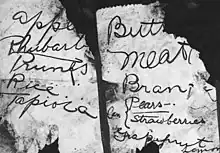 apple
Rhubarb
Prunes
Rice
Tapioca
Butt
meat
Bran
Pears -
Strawberries
Grapefruit